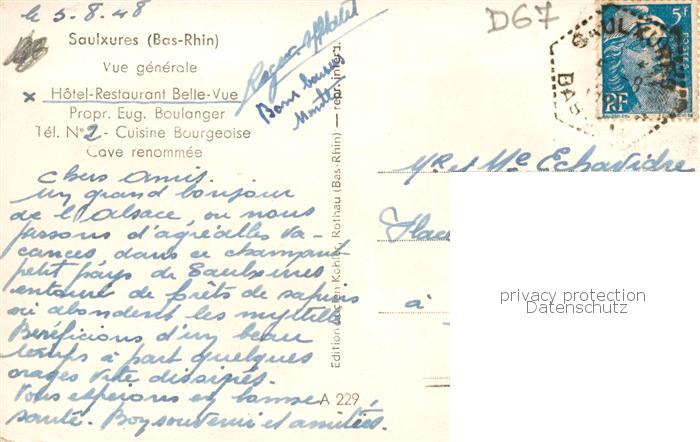 le 5.8.48
D67
Saulxures (Bas-Rhin)
Vue générale
x Hôtel-Restaurant Belle-Vue
Propr. Eug. Boulanger
Tél. N° 2 - Cuisine Bourgeoise
Cave renommée
Bons baisers
5F
POSTES
RF
SAULXURES
BAS
Chers Amis.
Un grand bonjour
de l'Alsace, ou nous
passons d'agréables va-
cances, dans ce charmant
petit pays de Saulxures
entouré de forêts de sapins
où abondent les myrtilles
Bénéficions d'un beau
temps à part quelques
orages vite dissipés.
Vous espérons en bonne
santé. Bon souvenir et amitiés.
Edition Lucien Kohler, Rothau (Bas-Rhin) — repr. interd.
A 229
Mr et Me Echavidre
Place
à
privacy protection
Datenschutz